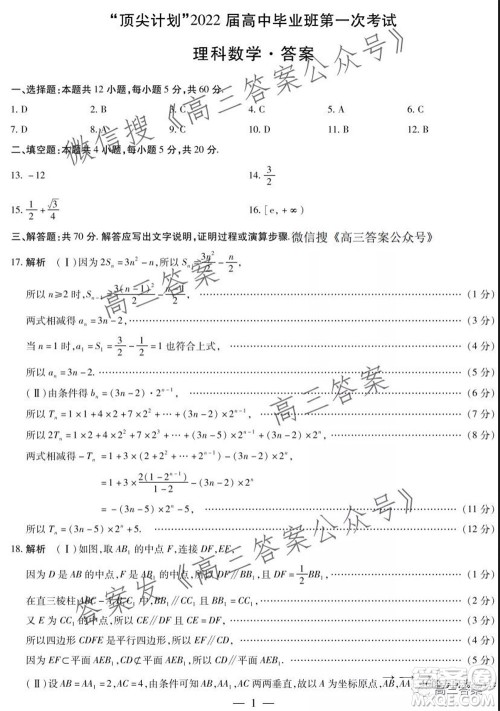 “顶尖计划”2022 届高中毕业班第一次考试
理科数学·答案
一、选择题:本题共 12 小题,每小题 5 分,共 60 分.
1. D 2. B 3. C 4. C 5. A 6. C
7. D 8. A 9. C 10. D 11. B 12. B
二、填空题:本题共 4 小题,每小题 5 分,共 20 分.
13. -12 14. 3/2
15. 1/2+√3/4 16. [e,+∞)
三、解答题:共 70 分. 解答应写出文字说明,证明过程或演算步骤. 微信搜《高三答案公众号》
17. 解析 (Ⅰ)因为 2Sₙ=3n²-n,所以 Sₙ=3n²/2-n/2,
所以 n≥2 时,Sₙ₋₁=3(n-1)²/2-(n-1)/2, (1 分)
两式相减得 aₙ=3n-2, (3 分)
当 n=1 时,a₁=S₁=3/2-1/2=1 也符合上式, (4 分)
所以 aₙ=3n-2. (5 分)
(Ⅱ)由条件得 bₙ=(3n-2)·2ⁿ⁻¹, (6 分)
所以 Tₙ=1×1+4×2+7×2²+…+(3n-2)×2ⁿ⁻¹, (7 分)
所以 2Tₙ=1×2+4×2²+7×2³+…+(3n-5)×2ⁿ⁻¹+(3n-2)×2ⁿ, (8 分)
两式相减得 -Tₙ=1+3×(2+2²+…+2ⁿ⁻¹)-(3n-2)×2ⁿ
=1+3×2(1-2ⁿ⁻¹)/(1-2)-(3n-2)×2ⁿ (10 分)
=-(3n-5)×2ⁿ-5, (11 分)
所以 Tₙ=(3n-5)×2ⁿ+5. (12 分)
18. 解析 (Ⅰ)如图,取 AB₁ 的中点 F,连接 DF,EF.
因为 D 是 AB 的中点,F 是 AB₁ 的中点,所以 DF∥BB₁,且 DF=1/2BB₁, (1 分)
在直三棱柱 ABC-A₁B₁C₁ 中,BB₁∥CC₁ 且 BB₁=CC₁, (2 分)
又 E 为 CC₁ 的中点,所以 CE∥DF 且 CE=DF, (3 分)
所以四边形 CDFE 是平行四边形,所以 EF∥CD, (4 分)
因为 EF⊂平面 AEB₁,CD⊄平面 AEB₁,所以 CD∥平面 AEB₁. (5 分)
(Ⅱ)设 AB=AA₁=2,AC=4,由条件可知 AB,AA₁,AC 两两垂直,故以 A 为坐标原点,
— 1 —
微信搜《高三答案公众号》
高三答案
高三答案
答案发《高三答案公众号》
高三答案